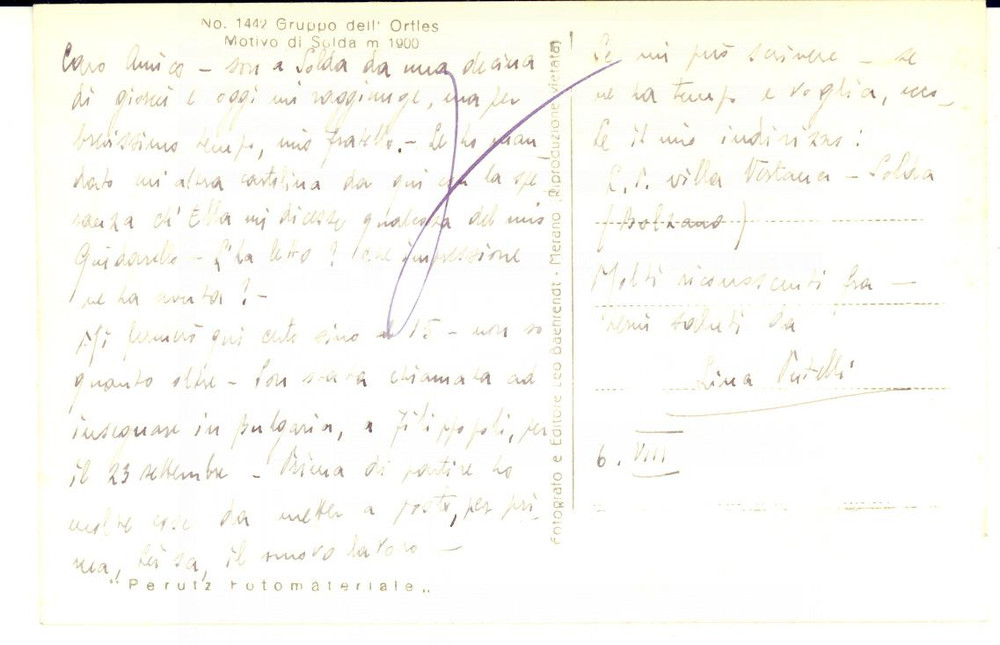 No. 1442 Gruppo dell' Ortles
Motivo di Solda m 1900
Caro Amico – son a Solda da una decina
di giorni e oggi mi raggiunge, ma per
brevissimo tempo, mio fratello. – Le ho man
dato un'altra cartolina da qui con la spe
ranza ch'Ella mi dicesse qualcosa del mio
Guidarello – L'ha letto? che impressione
ne ha avuta? –
Mi fermerò qui certo sino al 15 – non so
quanto oltre – Son stata chiamata ad
insegnare in Bulgaria, a Filippopoli, per
il 23 settembre – Prima di partire ho
molte cose da metter a posto, per pri
ma, Lei sa, il nuovo lavoro –
"Perutz Fotomateriale"
Fotografo e Editore Leo Baehrendt - Merano (Riproduzione vietata)
Se mi può scrivere – se
ne ha tempo e voglia, ecco
Le il mio indirizzo:
L. P. villa – Solda
(Bolzano)
Molti riconoscenti
saluti da
Lina
6. VIII